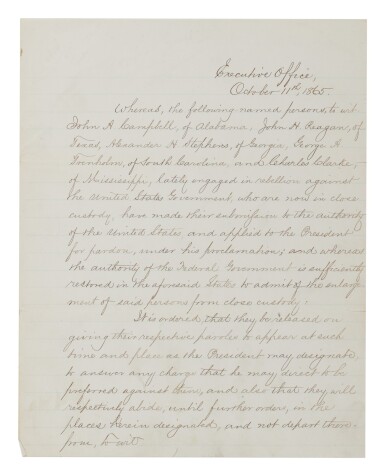 Executive Office,
October 11th, 1865.
Whereas, the following named persons, to wit
John A. Campbell, of Alabama, John H. Reagan, of
Texas, Alexander H Stephens, of Georgia, George A.
Trenholm, of South Carolina, and Charles Clarke,
of Mississippi, lately engaged in rebellion against
the United States Government, who are now in close
custody, have made their submission to the authority
of the United States and applied to the President
for pardon, under his proclamation; and whereas
the authority of the Federal Government is sufficiently
restored in the aforesaid States to admit of the enlarge
ment of said persons from close custody:
It is ordered, that they be released on
giving their respective paroles to appear at such
time and place as the President may designate,
to answer any charge that he may direct to be
preferred against them, and also that they will
respectively abide, until further orders, in the
places herein designated, and not depart there-
from, to wit